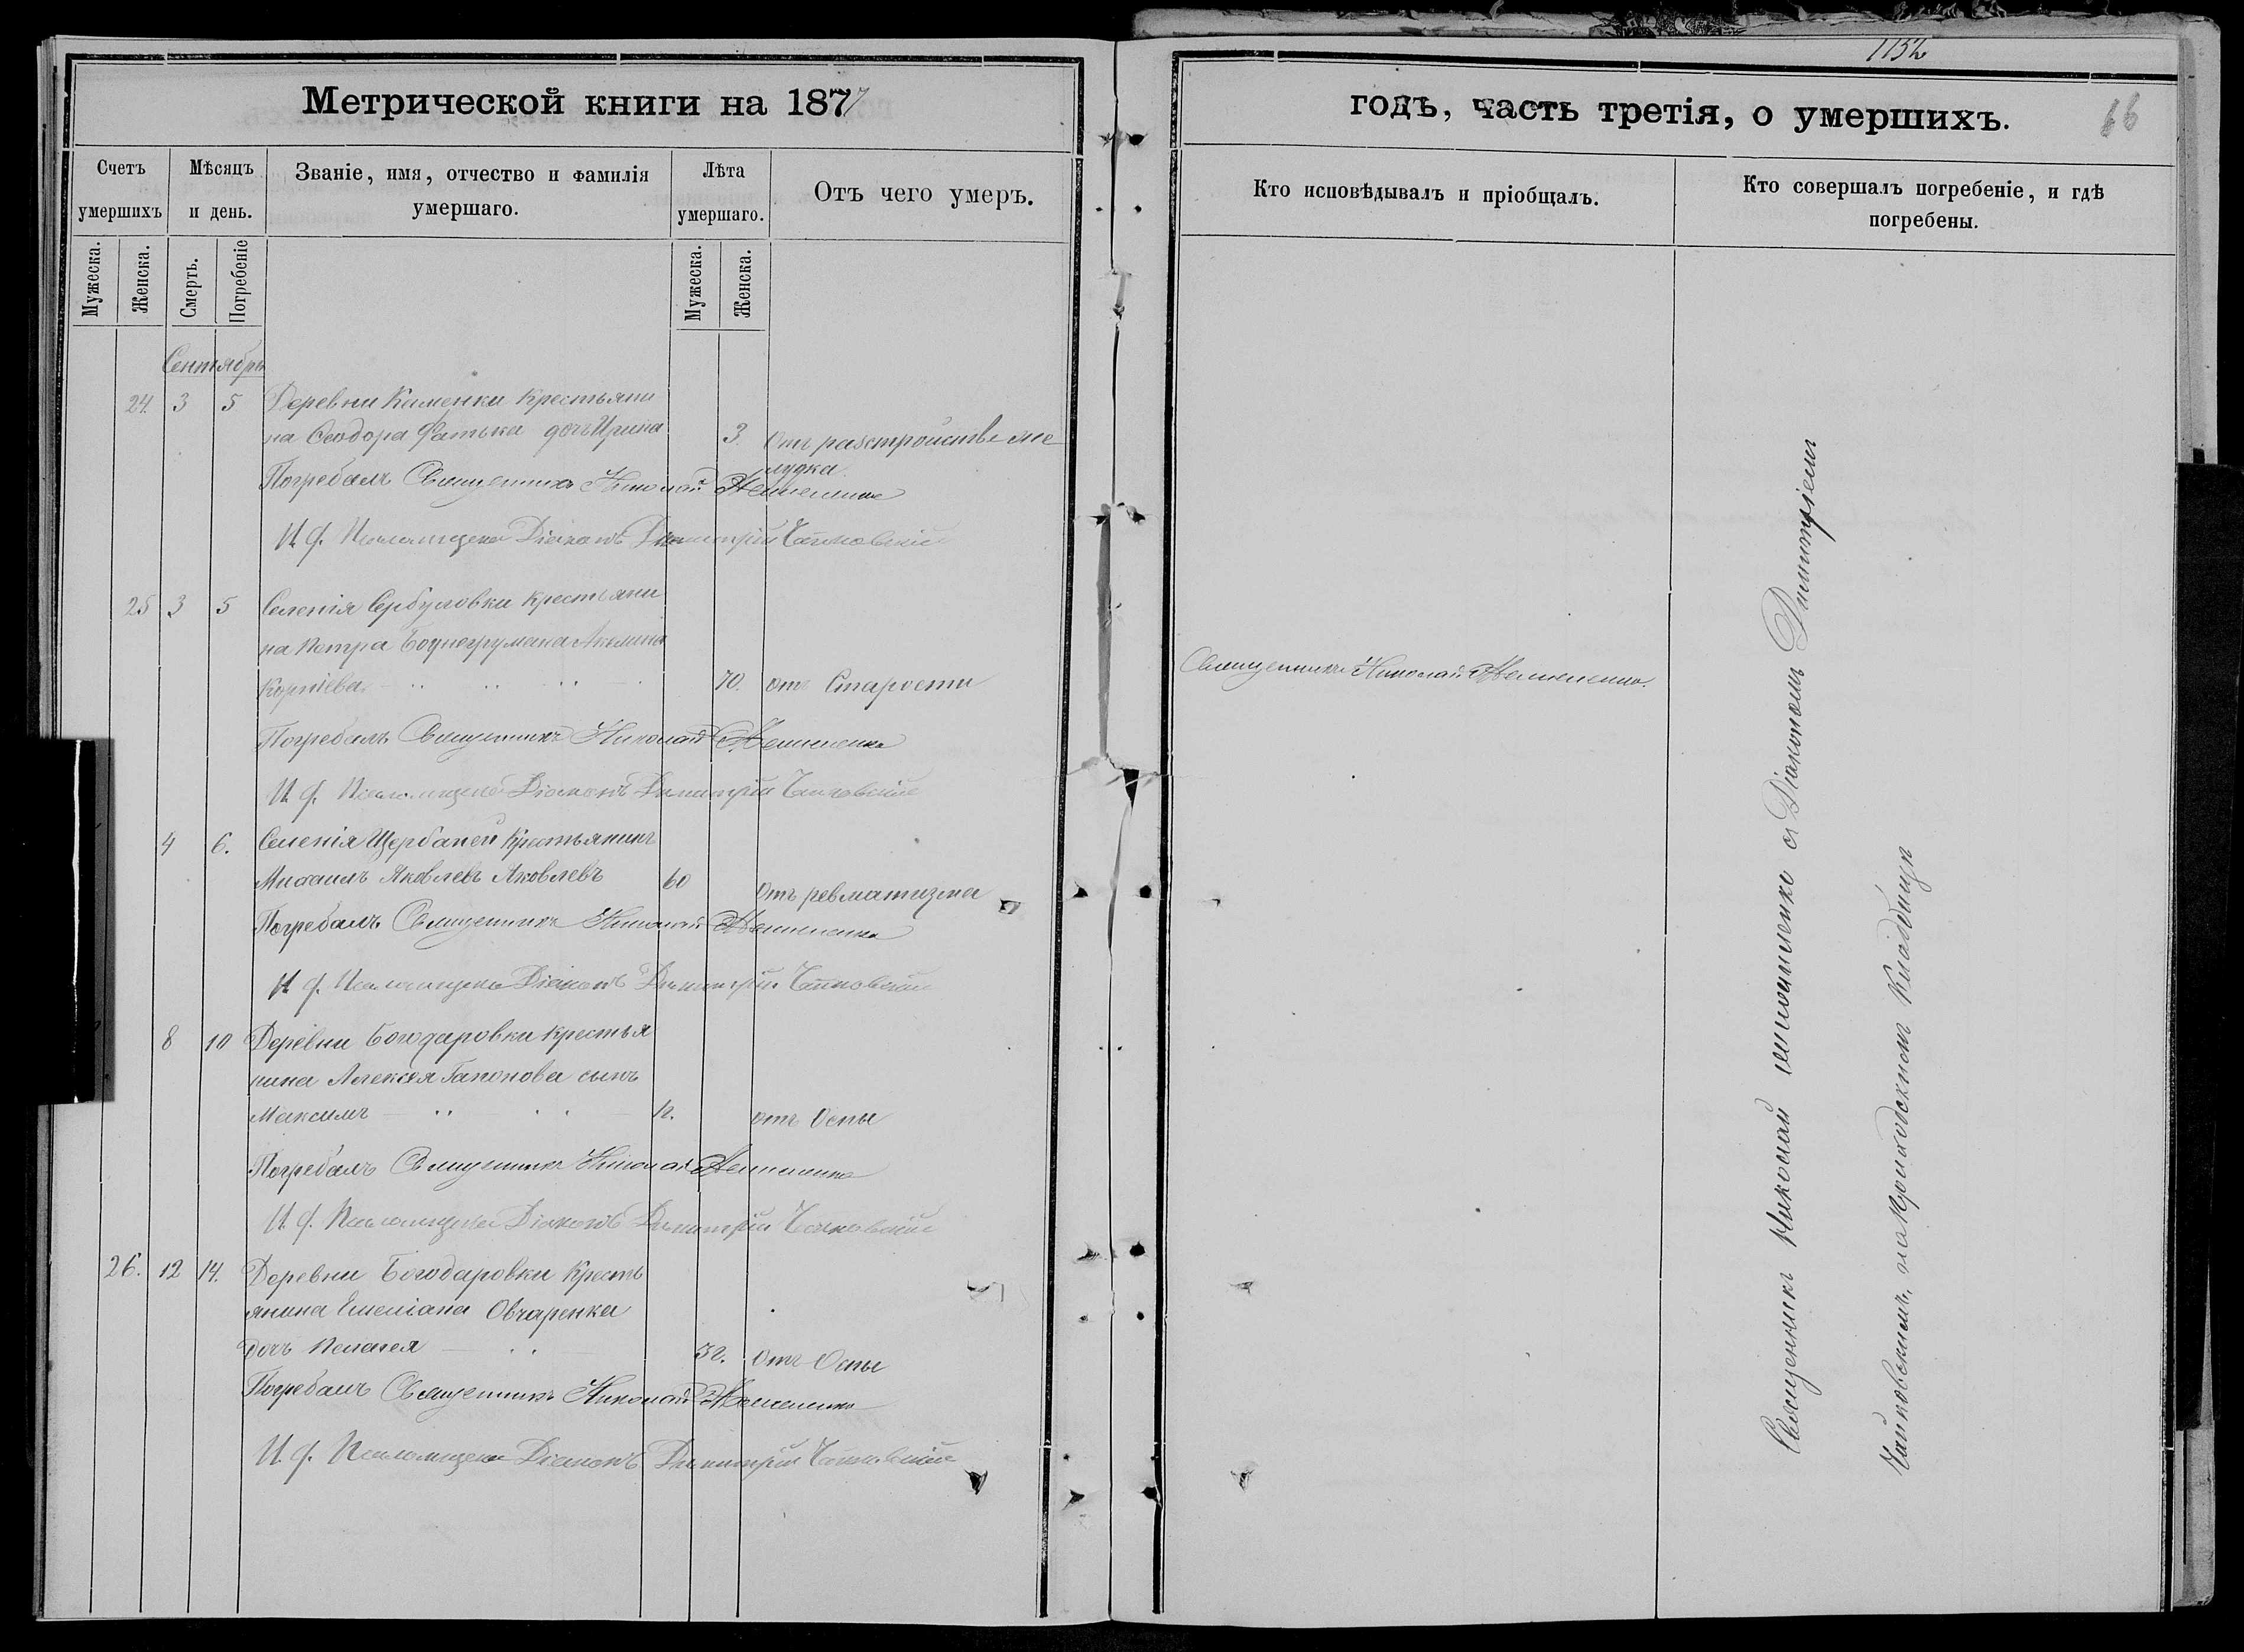 1152
66
Метрической книги на 1877
годъ, часть третія, о умершихъ.
Счетъ умершихъ
Мѣсяцъ и день.
Званіе, имя, отчество и фамилія умершаго.
Лѣта умершаго.
Отъ чего умеръ.
Кто исповѣдывалъ и пріобщалъ.
Кто совершалъ погребеніе, и гдѣ погребены.
Мужеска.
Женска.
Смерть.
Погребеніе
Мужеска.
Женска.
Сентябрь
24. 3 5 Деревни Каменки крестьяни
на Ѳеодора Фатька дочь Ирина 3. Отъ разстройства же
лудка
Погребалъ Священникъ Николай
И. ф. Псаломщика Діаконъ Димитрій Чайковскій
25 3 5 Селенія Сербуловки крестьяни
на Петра Боднегрумана Акилина
Корніева 70. отъ Старости
Священникъ Николай
Погребалъ Священникъ Николай
И. ф. Псаломщика Діаконъ Димитрій Чайковскій
4 6. Селенія Щербаней Крестьянинъ
Михаилъ Яковлевъ Яковлевъ 60 Отъ ревматизма
Погребалъ Священникъ Николай
И. ф. Псаломщика Діаконъ Димитрій Чайковскій
8 10 Деревни Богодаровки крестья
нина Алексѣя Гапонова сынъ
Максимъ отъ Оспы
Погребалъ Священникъ Николай
И. ф. Псаломщика Діаконъ Димитрій Чайковскій
26. 12 14. Деревни Богодаровки Кресть
янина Емеліана Овчаренка
дочь Пелагея Отъ Оспы
Погребалъ Священникъ Николай
И. ф. Псаломщика Діаконъ Димитрій Чайковскій
Священникъ Николай съ Діакономъ Димитріемъ
Чайковскимъ, на Приходскомъ Кладбищѣ